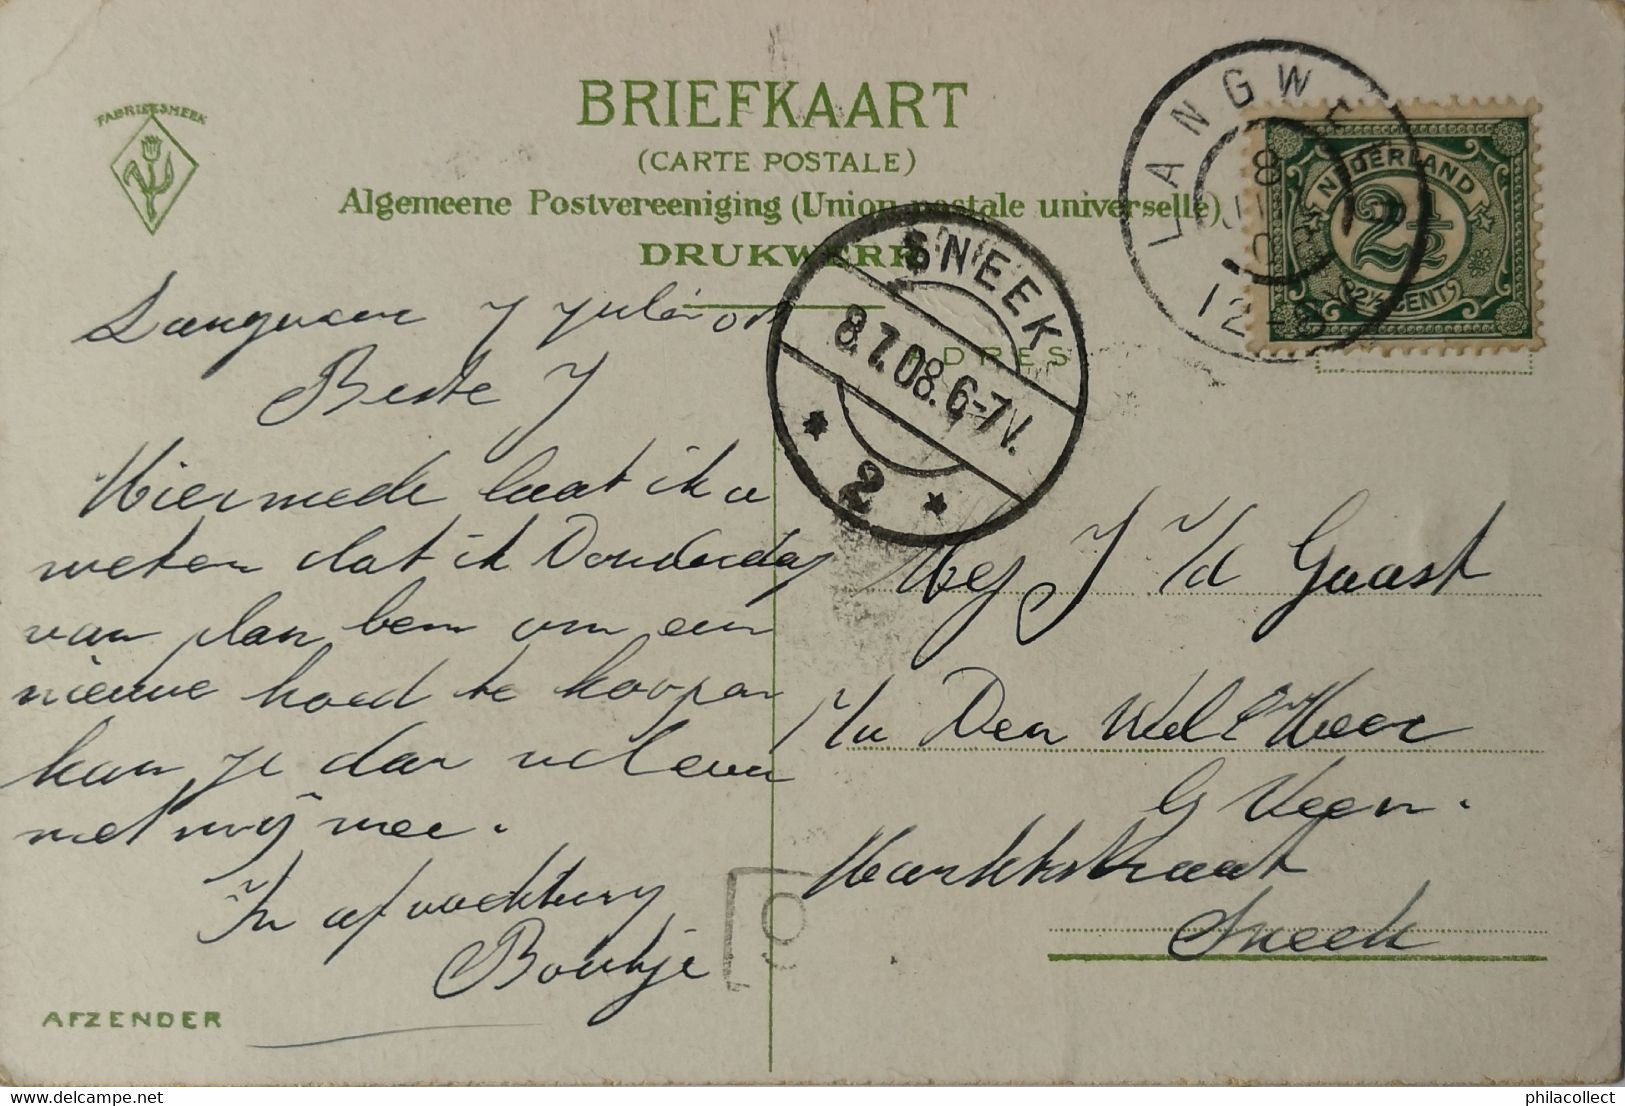 FABRIEKSMERK
BRIEFKAART
(CARTE POSTALE)
Algemeene Postvereeniging (Union postale universelle)
DRUKWERK
LANGWEER
8
12
NEDERLAND
2½
2½ CENT
SNEEK
8.7.08.6-7V.
2
ADRES
Langweer 7 Juli 08
Beste J
Hiermede laat ik u
weten dat ik Donderdag
van plan ben om een
nieuwe hoed te koopen
kan je dan
met mij mee.
In afwachting
Boukje
AFZENDER
Mej J v/d Gaast
Den Wel Heer
G Veen.
Marktstraat
Sneek
philacollect